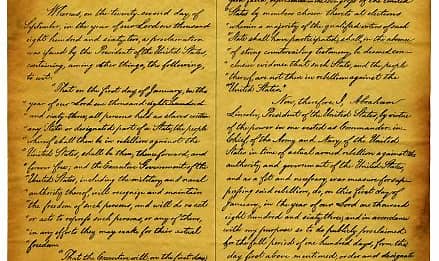 Whereas, on the twenty-second day of
September, in the year of our Lord one thousand
eight hundred and sixty two, a proclamation
was issued by the President of the United States,
containing, among other things, the following,
to wit:
"That on the first day of January, in the
year of our Lord one thousand eight hundred
and sixty-three, all persons held as slaves within
any State or designated part of a State, the people
whereof shall then be in rebellion against the
United States, shall be then, thenceforward, and
forever free; and the Executive Government of the
United States, including the military and naval
authority thereof, will recognize and maintain
the freedom of such persons, and will do no act
or acts to repress such persons, or any of them,
in any efforts they may make for their actual
freedom.
"That the Executive will, on the first day
States by members chosen thereto at elections
wherein a majority of the qualified voters of such
State shall have participated, shall, in the absence
of strong countervailing testimony, be deemed con-
clusive evidence that such State, and the people
thereof, are not then in rebellion against the
United States."
Now, therefore I, Abraham
Lincoln, President of the United States, by virtue
of the power in me vested as Commander-in-
Chief, of the Army and Navy, of the United
States in time of actual armed rebellion against the
authority and government of the United States,
and as a fit and necessary war measure for sup-
pressing said rebellion, do, on this first day of
January, in the year of our Lord one thousand
eight hundred and sixty three, and in accordance
with my purpose so to do publicly proclaimed
for the full period of one hundred days, from the
day first above mentioned, order and designate